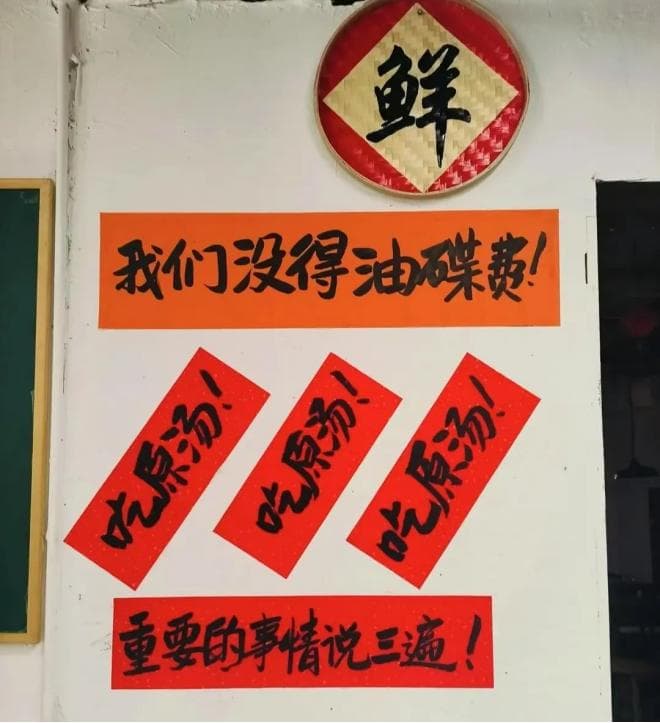 鲜
我们没得油碟费!
吃原汤!
吃原汤!
吃原汤!
重要的事情说三遍!